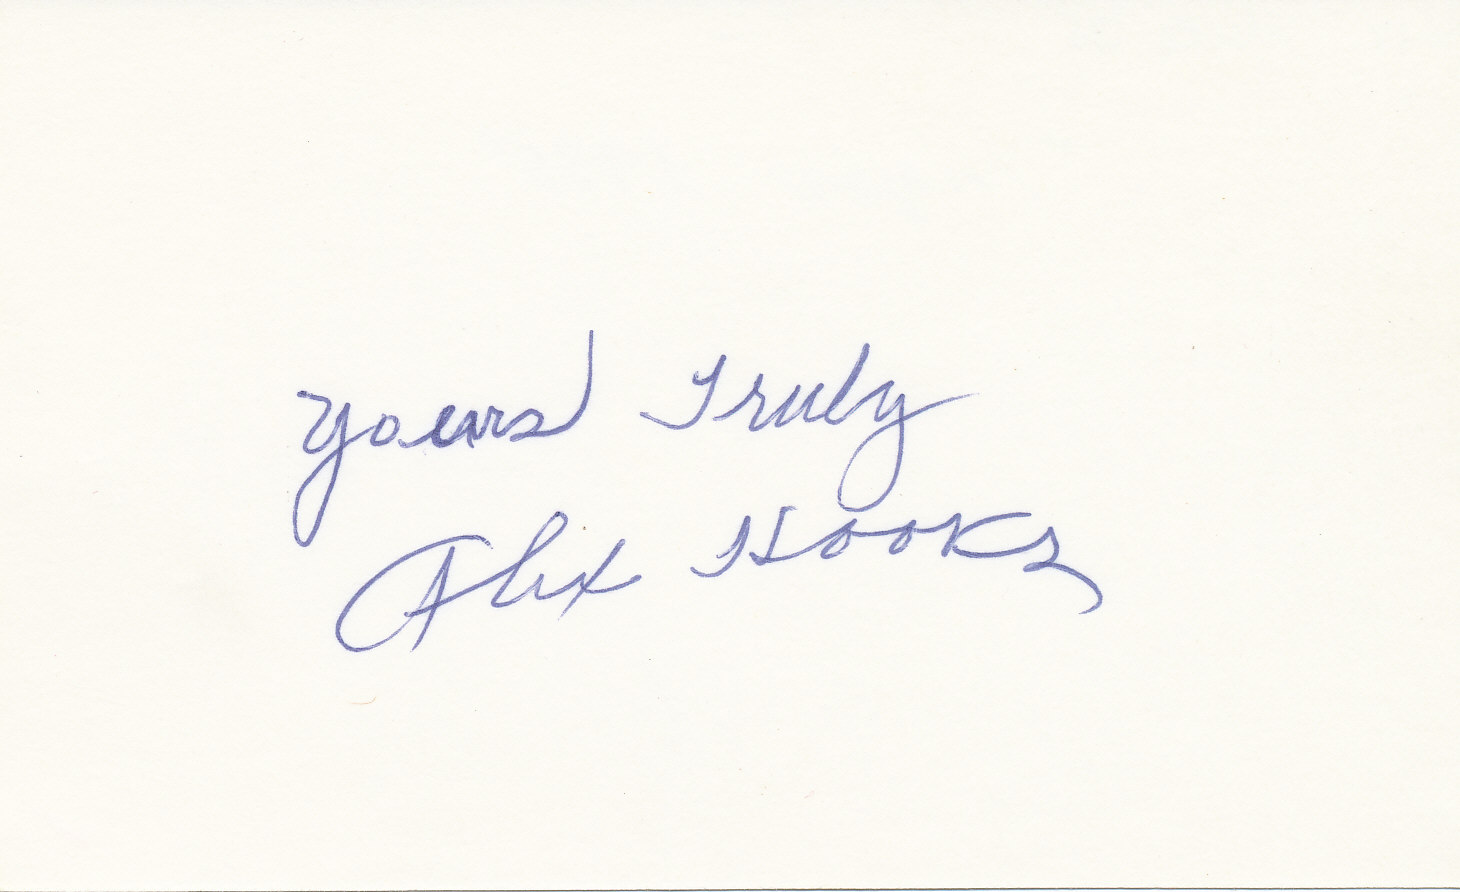 Yours Truly
Alex Hooks